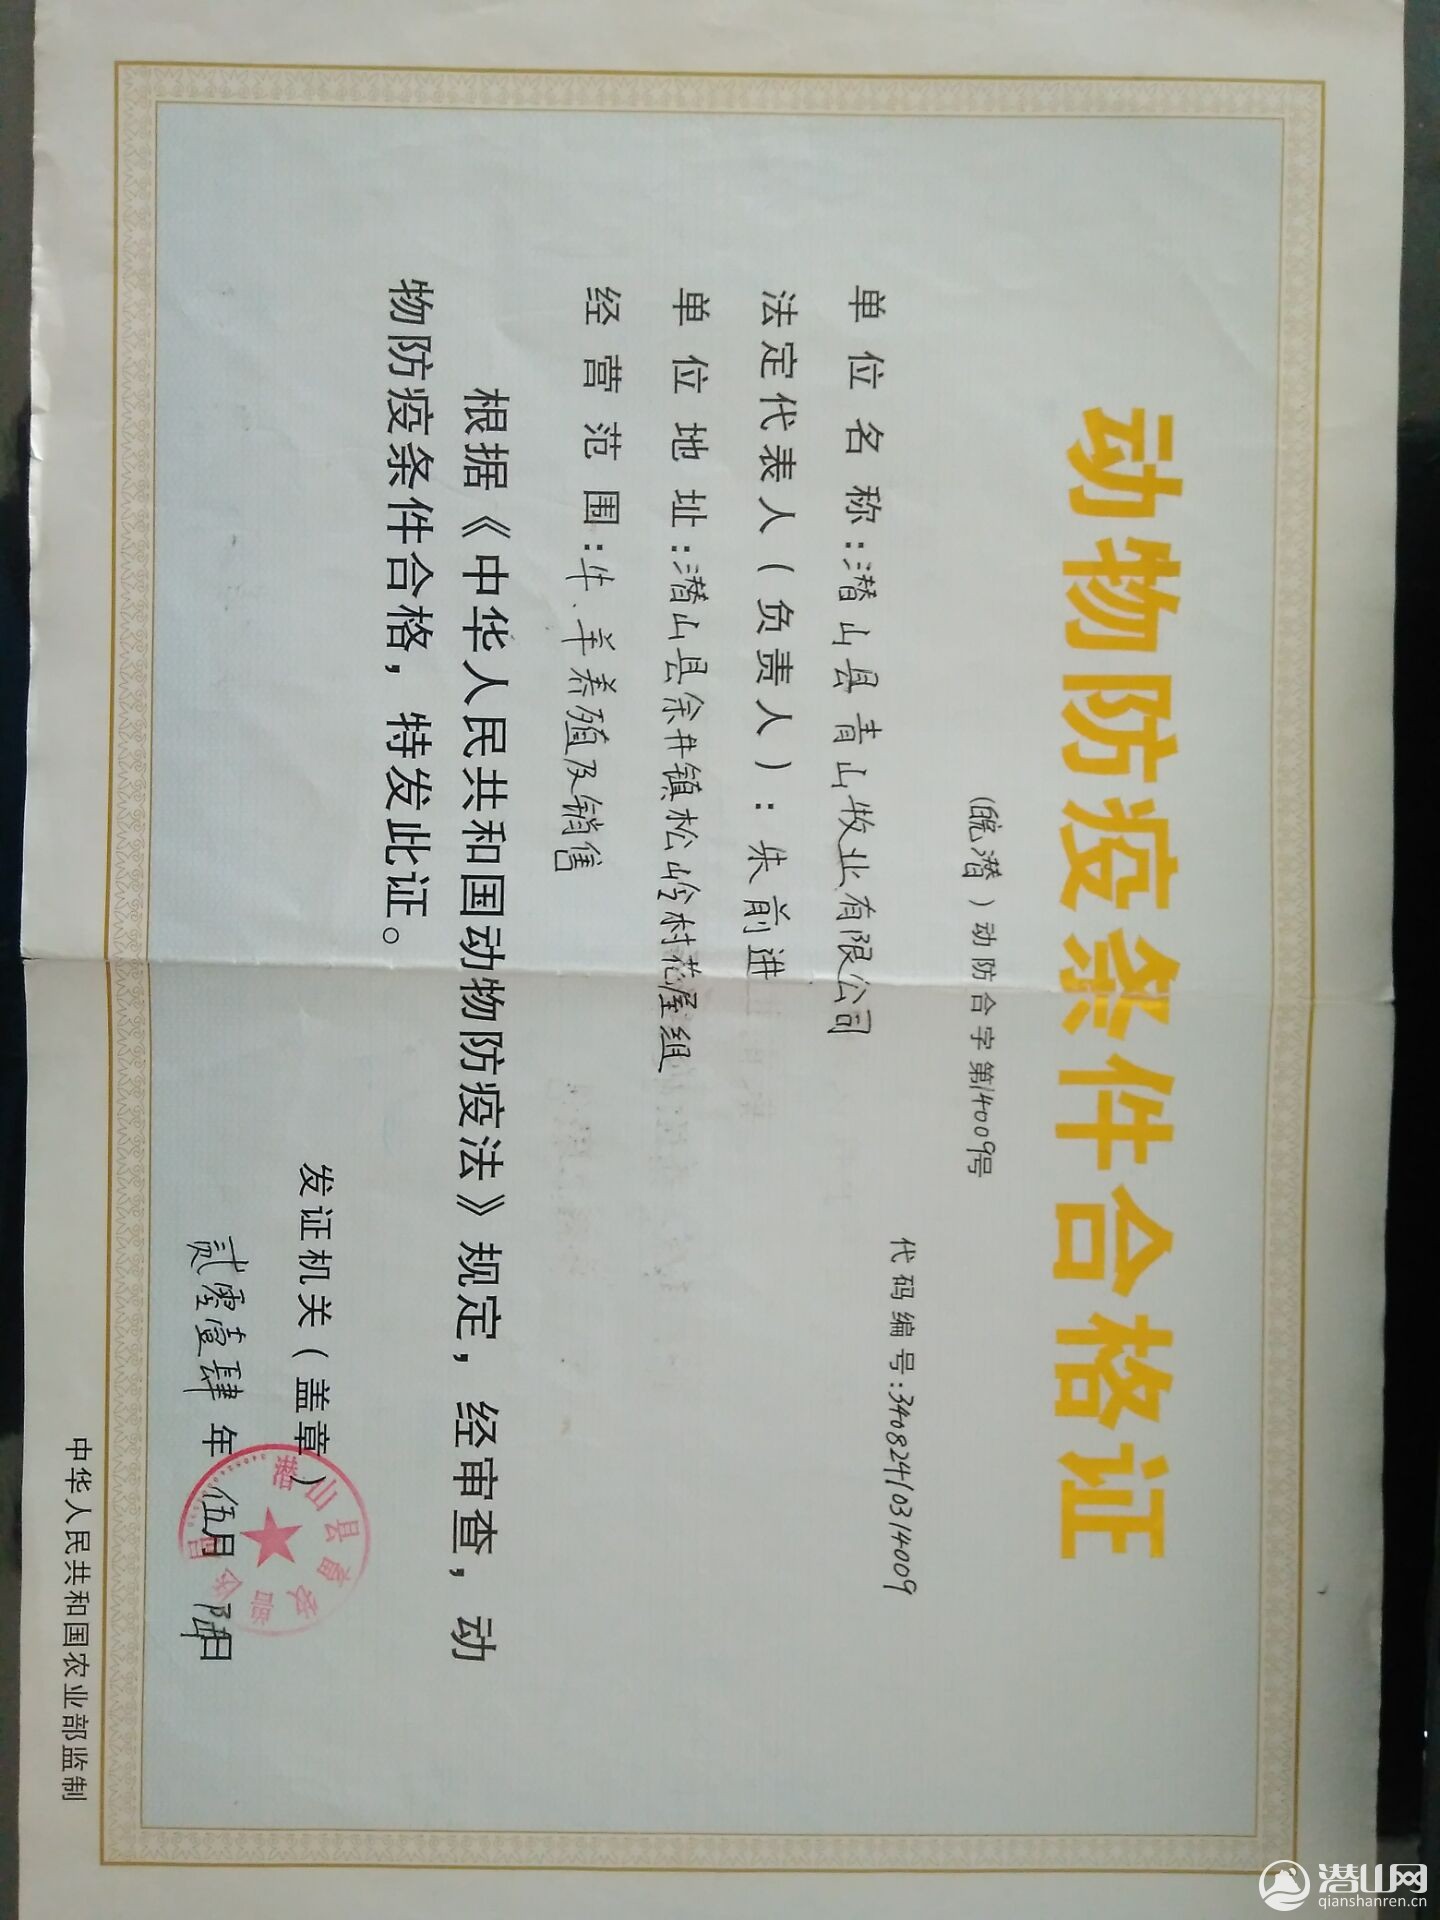 动物防疫条件合格证
(皖潜)动防合字第14009号
代码编号:34082410314009
单位名称:潜山县青山牧业有限公司
法定代表人(负责人):朱前进
单位地址:潜山县余井镇松岭村花屋组
经营范围:牛、羊养殖及销售
根据《中华人民共和国动物防疫法》规定,经审查,动
物防疫条件合格,特发此证。
发证机关(盖章)
贰零壹肆年伍月陆日
潜山县畜
中华人民共和国农业部监制
潜山网
qianshanren.cn